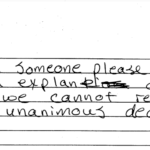 someone please
explan
we cannot re
unanimous dec